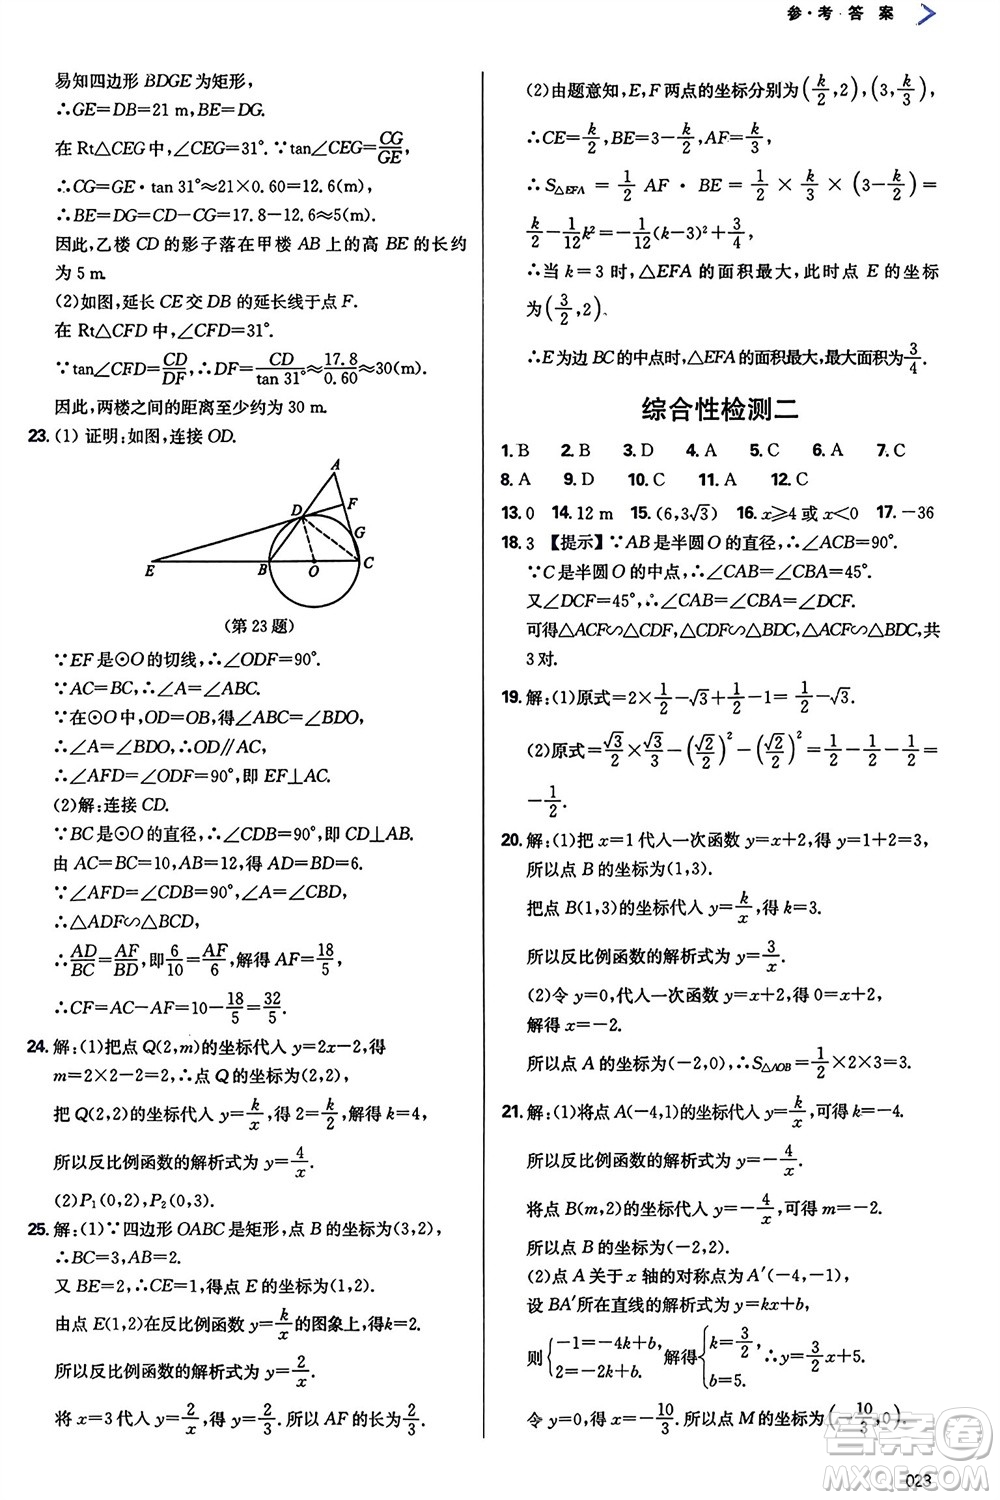 参·考·答 案
易知四边形 BDGE 为矩形,
∴GE=DB=21 m,BE=DG.
在 Rt△CEG 中,∠CEG=31°.∵tan∠CEG=CG/GE,
∴CG=GE·tan 31°≈21×0.60=12.6(m).
∴BE=DG=CD-CG=17.8-12.6≈5(m).
因此,乙楼 CD 的影子落在甲楼 AB 上的高 BE 的长约
为 5 m.
(2)如图,延长 CE 交 DB 的延长线于点 F.
在 Rt△CFD 中,∠CFD=31°.
∵tan∠CFD=CD/DF,∴DF=CD/tan 31°≈17.8/0.60≈30(m).
因此,两楼之间的距离至少约为 30 m.
23.(1) 证明:如图,连接 OD.
A
D
F
G
E
B
O
C
(第 23 题)
∵EF 是⊙O 的切线,∴∠ODF=90°.
∵AC=BC,∴∠A=∠ABC.
∵在⊙O 中,OD=OB,得∠ABC=∠BDO,
∴∠A=∠BDO,∴OD∥AC,
∴∠AFD=∠ODF=90°,即 EF⊥AC.
(2)解:连接 CD.
∵BC 是⊙O 的直径,∴∠CDB=90°,即 CD⊥AB.
由 AC=BC=10,AB=12,得 AD=BD=6.
∵∠AFD=∠CDB=90°,∠A=∠CBD,
∴△ADF∽△BCD,
∴AD/BC=AF/BD,即6/10=AF/6,解得 AF=18/5,
∴CF=AC-AF=10-18/5=32/5.
24.解:(1)把点 Q(2,m)的坐标代入 y=2x-2,得
m=2×2-2=2,∴点 Q 的坐标为(2,2),
把 Q(2,2)的坐标代入 y=k/x,得 2=k/2,解得 k=4,
所以反比例函数的解析式为 y=4/x.
(2)P₁(0,2),P₂(0,3).
25.解:(1)∵四边形 OABC 是矩形,点 B 的坐标为(3,2),
∴BC=3,AB=2.
又 BE=2,∴CE=1,得点 E 的坐标为(1,2),
由点 E(1,2)在反比例函数 y=k/x的图象上,得 k=2,
所以反比例函数的解析式为 y=2/x.
将 x=3 代入 y=2/x,得 y=2/3.所以 AF 的长为2/3.
(2)由题意知,E,F 两点的坐标分别为(k/2,2),(3,k/3),
∴CE=k/2,BE=3-k/2,AF=k/3.
∴S△EFA=1/2 AF·BE=1/2×k/3×(3-k/2)=
k/2-1/12k²=-1/12(k-3)²+3/4,
∴当 k=3 时,△EFA 的面积最大,此时点 E 的坐标
为(3/2,2).
∴E 为边 BC 的中点时,△EFA 的面积最大,最大面积为3/4.
综合性检测二
1.B 2.B 3.D 4.A 5.C 6.A 7.C
8.A 9.D 10.C 11.A 12.C
13.0 14.12 m 15.(6,3√3) 16.x≥4 或 x<0 17.-36
18.3 【提示】∵AB 是半圆 O 的直径,∴∠ACB=90°.
∵C 是半圆 O 的中点,∴∠CAB=∠CBA=45°.
又∠DCF=45°,∴∠CAB=∠CBA=∠DCF.
可得△ACF∽△CDF,△CDF∽△BDC,△ACF∽△BDC,共
3 对.
19.解:(1)原式=2×1/2-√3+1/2-1=1/2-√3.
(2)原式=√3/2×√3/3-(√2/2)²-(√2/2)²=1/2-1/2-1/2=
-1/2.
20.解:(1)把 x=1代入一次函数 y=x+2,得 y=1+2=3,
所以点 B 的坐标为(1,3).
把点 B(1,3)的坐标代入 y=k/x,得 k=3.
所以反比例函数的解析式为 y=3/x.
(2)令 y=0,代入一次函数 y=x+2,得 0=x+2,
解得 x=-2.
所以点 A 的坐标为(-2,0),∴S△AOB=1/2×2×3=3.
21.解:(1)将点 A(-4,1)的坐标代入 y=k/x,可得 k=-4.
所以反比例函数的解析式为 y=-4/x.
将点 B(m,2)的坐标代入 y=-4/x,可得 m=-2.
所以点 B 的坐标为(-2,2).
(2)点 A 关于 x 轴的对称点为 A′(-4,-1),
设 BA′所在直线的解析式为 y=kx+b,
则{-1=-4k+b, 2=-2k+b, 解得{k=3/2, b=5. ∴y=3/2x+5.
令 y=0,得 x=-10/3.所以点 M 的坐标为(-10/3,0).
答案圈
MXQE.COM
023